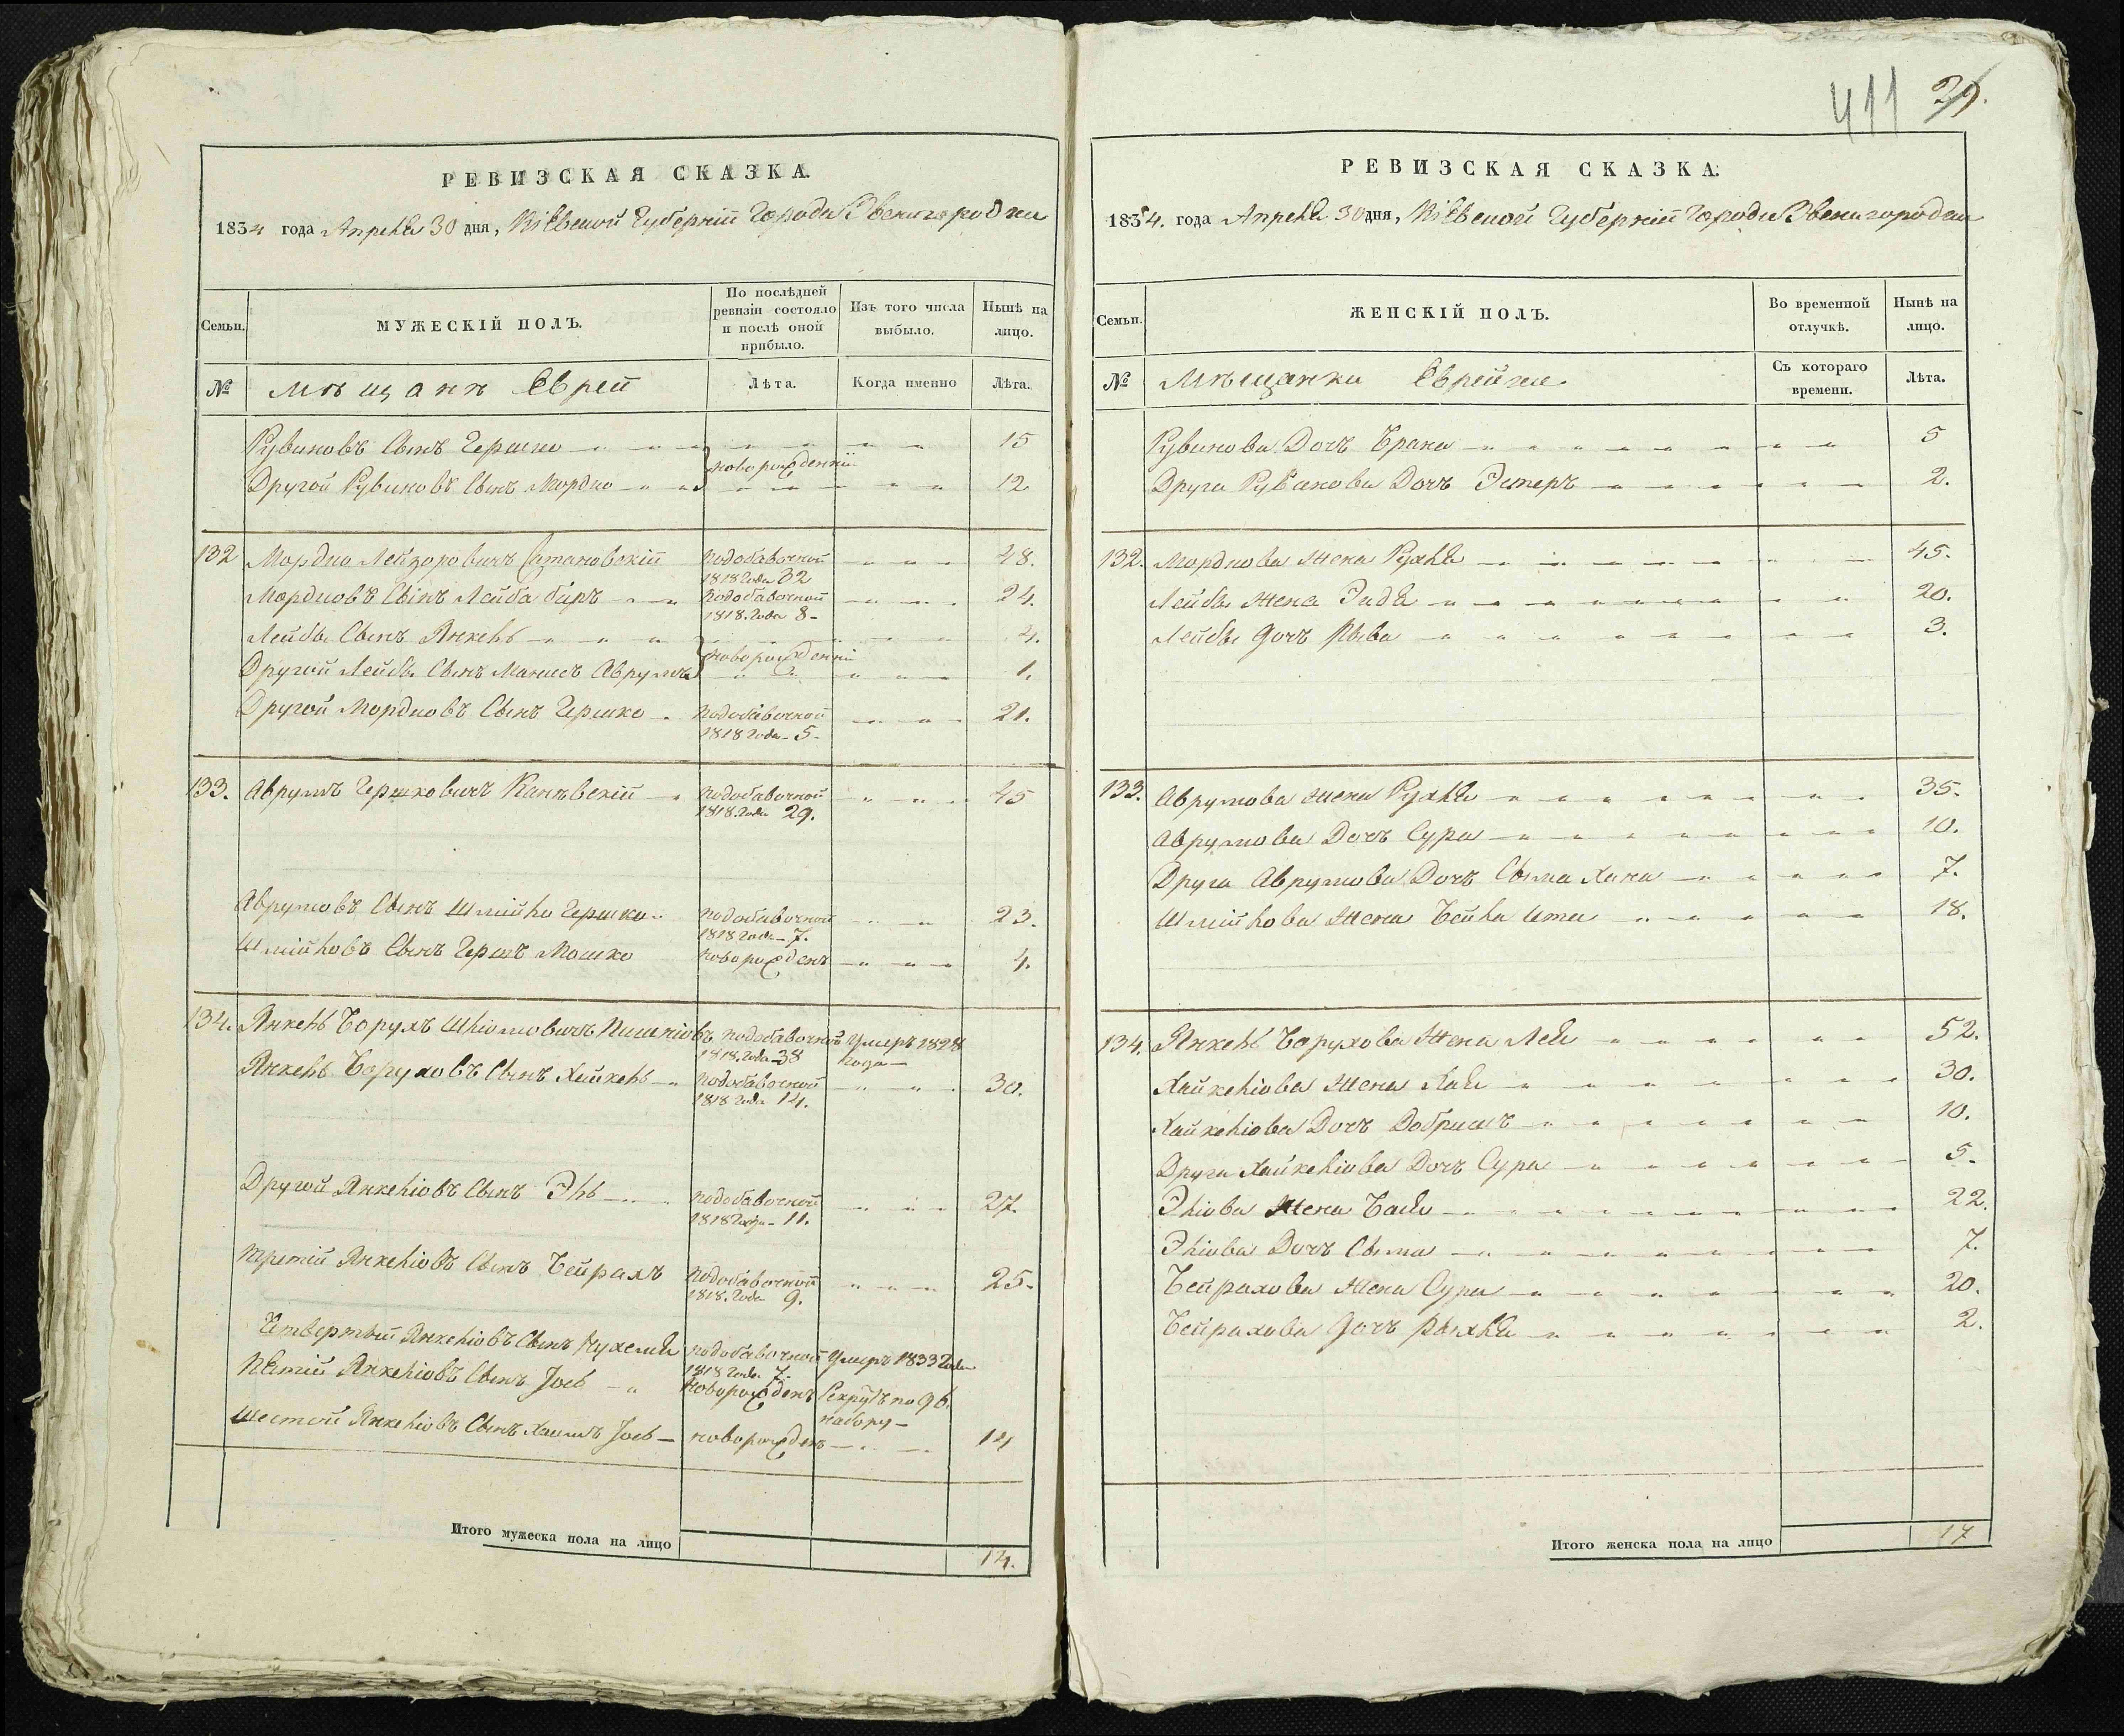 РЕВИЗСКАЯ СКАЗКА.
1834 года Апреля 30 дня, Кіевской Губерніи Города Звенигородки
Семьи.
МУЖЕСКІЙ ПОЛЪ.
По послѣдней
ревизіи состояло
и послѣ оной
прибыло.
Изъ того числа
выбыло.
Нынѣ на
лицо.
№
Мѣщанъ Еврей
Лѣта.
Когда именно
Лѣта.
Рувиновъ Сынъ Гершко 15
новорожденніи
Другой Рувиновъ Сынъ Мордко 12
132 Мордко Лейзоровичъ Сатановскій подобавочной 48.
1818 Года 32
Мордковъ Сынъ Лейба беръ подобавочной 24.
1818. Года 8
Лейбы Сынъ Янкель 4.
новорожденніи
Другой Лейбы Сынъ Манис Аврумъ 1.
Другой Мордковъ Сынъ Гершко подобавочной 21.
1818 Года 5
133. Аврумъ Гершковичъ Каневскій подобавочной 45
1818. Года 29.
Аврумовъ Сынъ Шмійло Гершко подобавочной 23.
1818 Года 7.
Шмійловъ Сынъ Гершъ Мошко новорожденъ 4.
134. Янкель Борухъ Шліомовичъ подобавочной Умеръ 1828
1818. Года 38 Года
Янкель Боруховъ Сынъ Хайкель подобавочной 30.
1818 Года 14.
Другой Янкеліовъ Сынъ Эль подобавочной 27.
1818 Года 11.
третій Янкеліовъ Сынъ Бейрахъ подобавочной 25.
1818. Года 9.
Четвертый Янкеліовъ Сынъ Нухемя подобавочной Умеръ 1833 Года
1818 Года 7.
Пятій Янкеліовъ Сынъ Іось новорожденъ Рекрутъ по 96.
набору
Шестой Янкеліовъ Сынъ Хаимъ Іось новорожденъ 14
Итого мужеска пола на лицо 14.
411 39.
РЕВИЗСКАЯ СКАЗКА.
1834. года Апреля 30 дня, Кіевской Губерніи Города Звенигородки
Семьи.
ЖЕНСКІЙ ПОЛЪ.
Во временной
отлучкѣ.
Нынѣ на
лицо.
№
Мѣщанки Еврейки
Съ котораго
времени.
Лѣта.
Рувинова Дочъ Брана 5
Друга Рувинова Дочъ Эстеръ 2.
132. Мордкова Жена Рухля 45.
Лейбы Жена Эидя 20.
Лейбы Дочъ Рыва 3.
133. Аврумова жена Рухля 35.
Аврумова Дочъ Сура 10.
Друга Аврумова Дочъ Сыма Хана 7.
Шмійлова Жена Бейла Ита 18.
134. Янкель Борухова Жена Лея 52.
Хайкеліова Жена Хая 30.
Хайкеліова Дочъ Добришъ 10.
Друга Хайкеліова Дочъ Сура 5.
Эліова Жена Бася 22.
Эліова Дочъ Сыма 7.
Бейрахова Жена Сура 20.
Бейрахова Дочъ Рыхля 2.
Итого женска пола на лицо 17